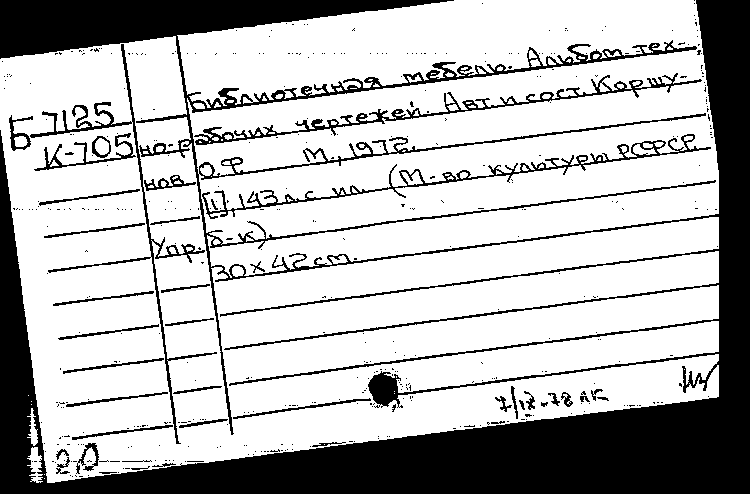 Б 7125
К-705
Библиотечная мебель. Альбом тех-
но-рабочих чертежей. Авт. и сост. Коршу-
нов О.Ф. М., 1972.
[1], 143 л. с ил. (М-во культуры РСФСР
Упр. б-к).
30×42 cm.
2,0